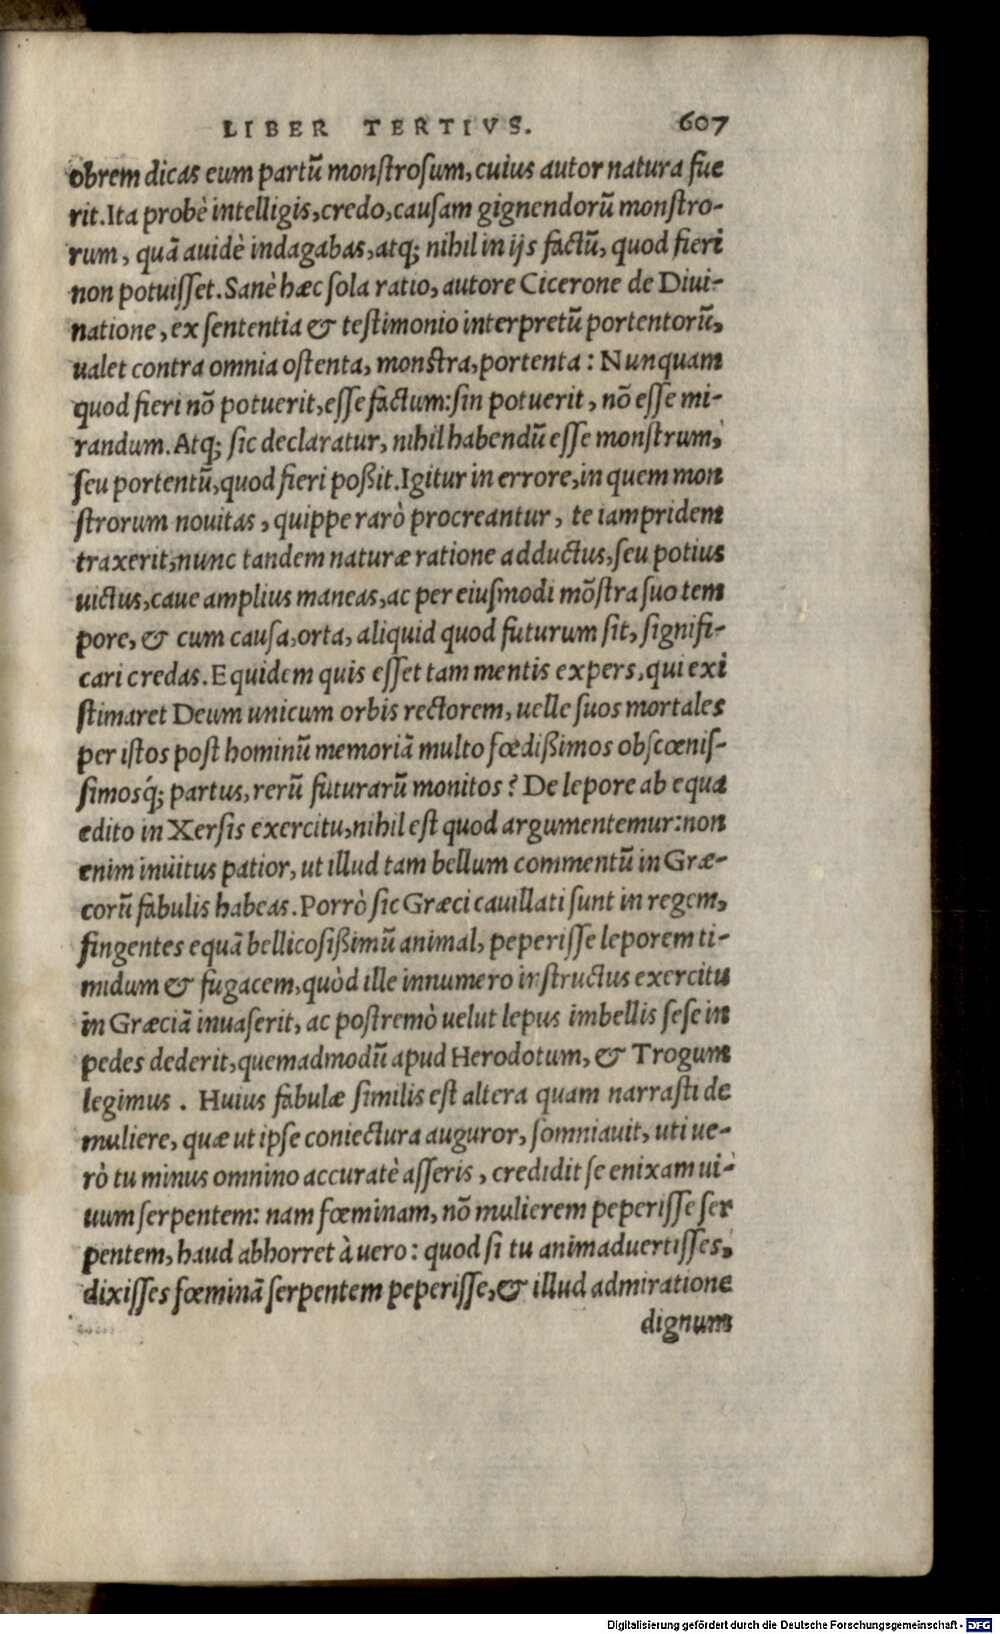 LIBER TERTIVS. 607
obrem dicas eum partū monſtroſum, cuius autor natura fue
rit. Ita probè intelligis, credo, cauſam gignendorū monſtro-
rum, quā auidè indagabas, atq; nihil in ijs factū, quod fieri
non potuiſſet. Sanè hæc ſola ratio, autore Cicerone de Diui-
natione, ex ſententia & teſtimonio interpretū portentorū,
ualet contra omnia oſtenta, monſtra, portenta: Nunquam
quod fieri nō potuerit, eſſe factum: ſin potuerit, nō eſſe mi-
randum. Atq; ſic declaratur, nihil habendū eſſe monſtrum,
ſeu portentū, quod fieri poßit. Igitur in errore, in quem mon
ſtrorum nouitas, quippe rarò procreantur, te iampridem
traxerit, nunc tandem naturæ ratione adductus, ſeu potius
uictus, caue amplius maneas, ac per eiuſmodi mōſtra ſuo tem
pore, & cum cauſa, orta, aliquid quod futurum ſit, ſignifi-
cari credas. Equidem quis eſſet tam mentis expers, qui exi
ſtimaret Deum unicum orbis rectorem, uelle ſuos mortales
per iſtos poſt hominū memoriā multo fœdißimos obſcœniſ-
ſimosq́; partus, rerū futurarū monitos? De lepore ab equa
edito in Xerſis exercitu, nihil eſt quod argumentemur: non
enim inuitus patior, ut illud tam bellum commentū in Græ-
corū fabulis habeas. Porrò ſic Græci cauillati ſunt in regem,
fingentes equā bellicoſißimū animal, peperiſſe leporem ti-
midum & fugacem, quòd ille innumero inſtructus exercitu
in Græciā inuaſerit, ac poſtremò uelut lepus imbellis ſeſe in
pedes dederit, quemadmodū apud Herodotum, & Trogum
legimus. Huius fabulæ ſimilis eſt altera quam narraſti de
muliere, quæ ut ipſe coniectura auguror, ſomniauit, uti ue-
rò tu minus omnino accuratè aſſeris, credidit ſe enixam ui-
uum ſerpentem: nam fœminam, nō mulierem peperiſſe ſer
pentem, haud abhorret à uero: quod ſi tu animaduertiſſes,
dixiſſes fœminā ſerpentem peperiſſe, & illud admiratione
dignum
Digitalisierung gefördert durch die Deutsche Forschungsgemeinschaft - DFG